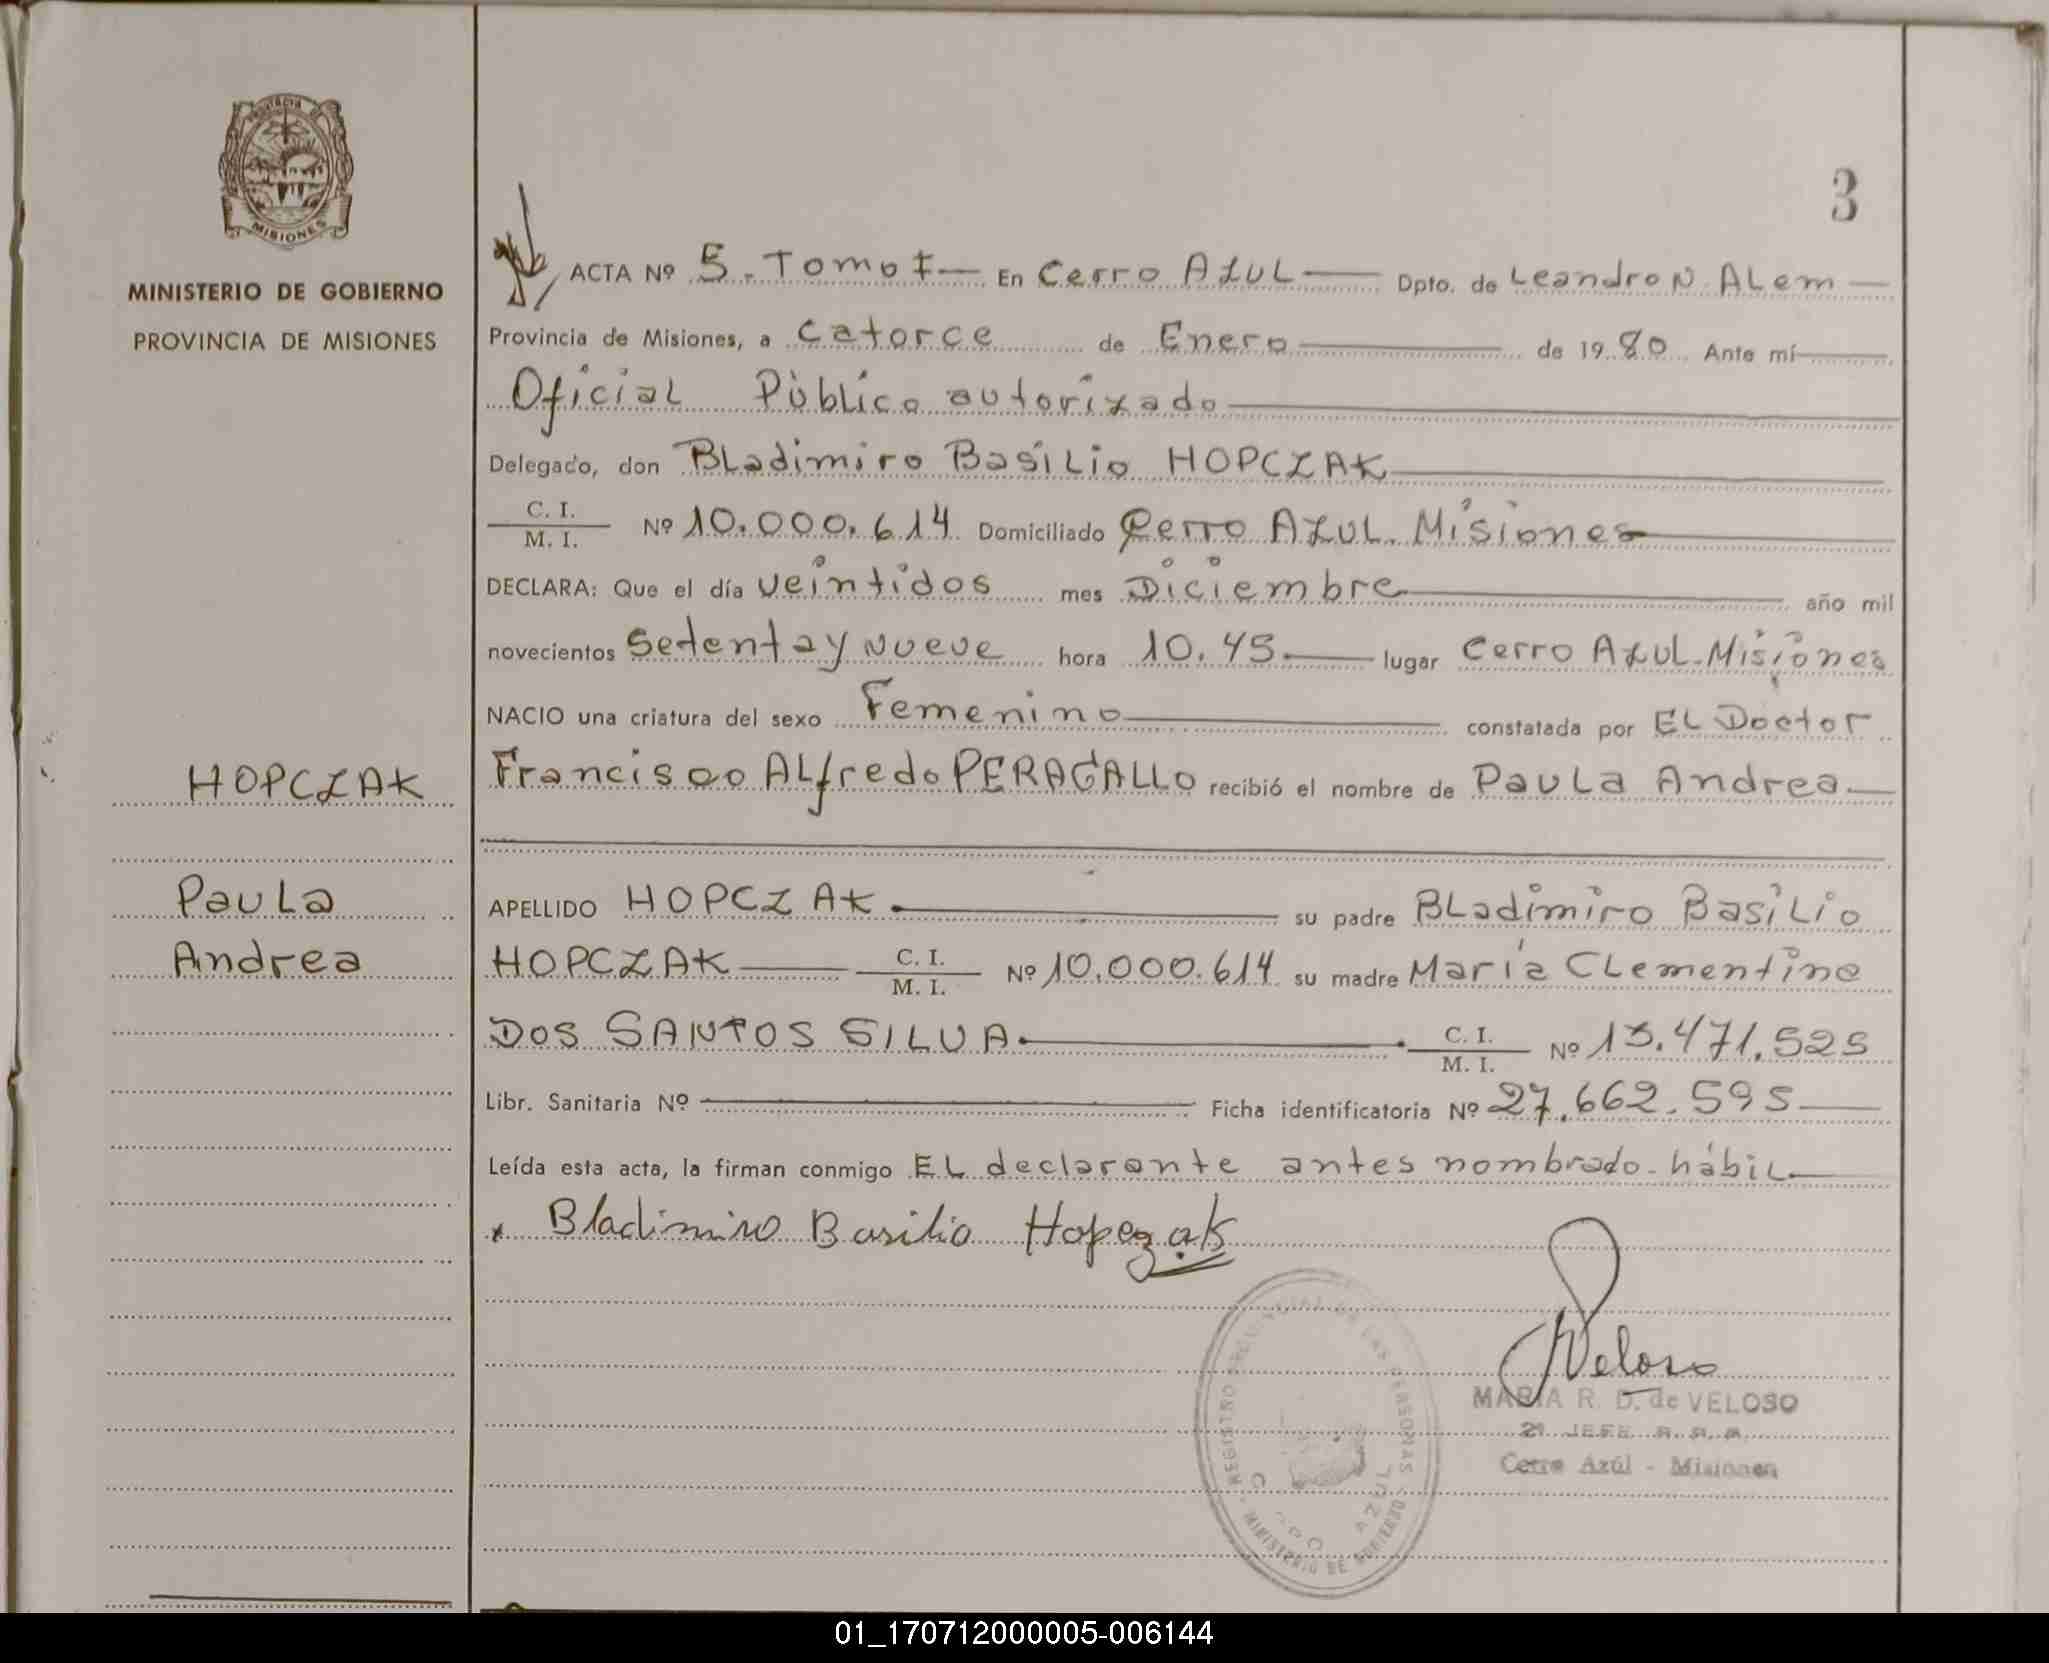 3
PROVINCIA DE
MISIONES
MINISTERIO DE GOBIERNO
PROVINCIA DE MISIONES
HOPCZAK
Paula
Andrea
ACTA Nº 5. Tomo I En Cerro AZUL Dpto. de Leandro N. ALem
Provincia de Misiones, a catorce de Enero de 1980 Ante mí
Oficial Público autorizado
Delegado, don BLadimiro BasiLio HOPCZAK
C. I.
M. I. Nº 10.000.614 Domiciliado Cerro AZUL. Misiones
DECLARA: Que el día veintidos mes Diciembre año mil
novecientos setenta y nueve hora 10.45 lugar Cerro AZUL-Misiones
NACIO una criatura del sexo Femenino constatada por EL Doctor
Francisco ALfredo PERAGALLO recibió el nombre de PauLa Andrea
APELLIDO HOPCZAK su padre BLadimiro BasiLio
HOPCZAK C. I.
M. I. Nº 10.000.614 su madre María CLementina
DOS SANTOS SILVA C. I.
M. I. Nº 13.471.525
Libr. Sanitaria Nº Ficha identificatoria Nº 27.662.595
Leída esta acta, la firman conmigo EL declarante antes nombrado-hábiL
x Bladimiro Basilio Hopczak
Veloso
MARIA R. D. de VELOSO
2º JEFE R.
Cerro Azúl - Misiones
REGISTRO PROVINCIAL DE LAS PERSONAS
MINISTERIO DE GOBIERNO
AZUL
01_170712000005-006144